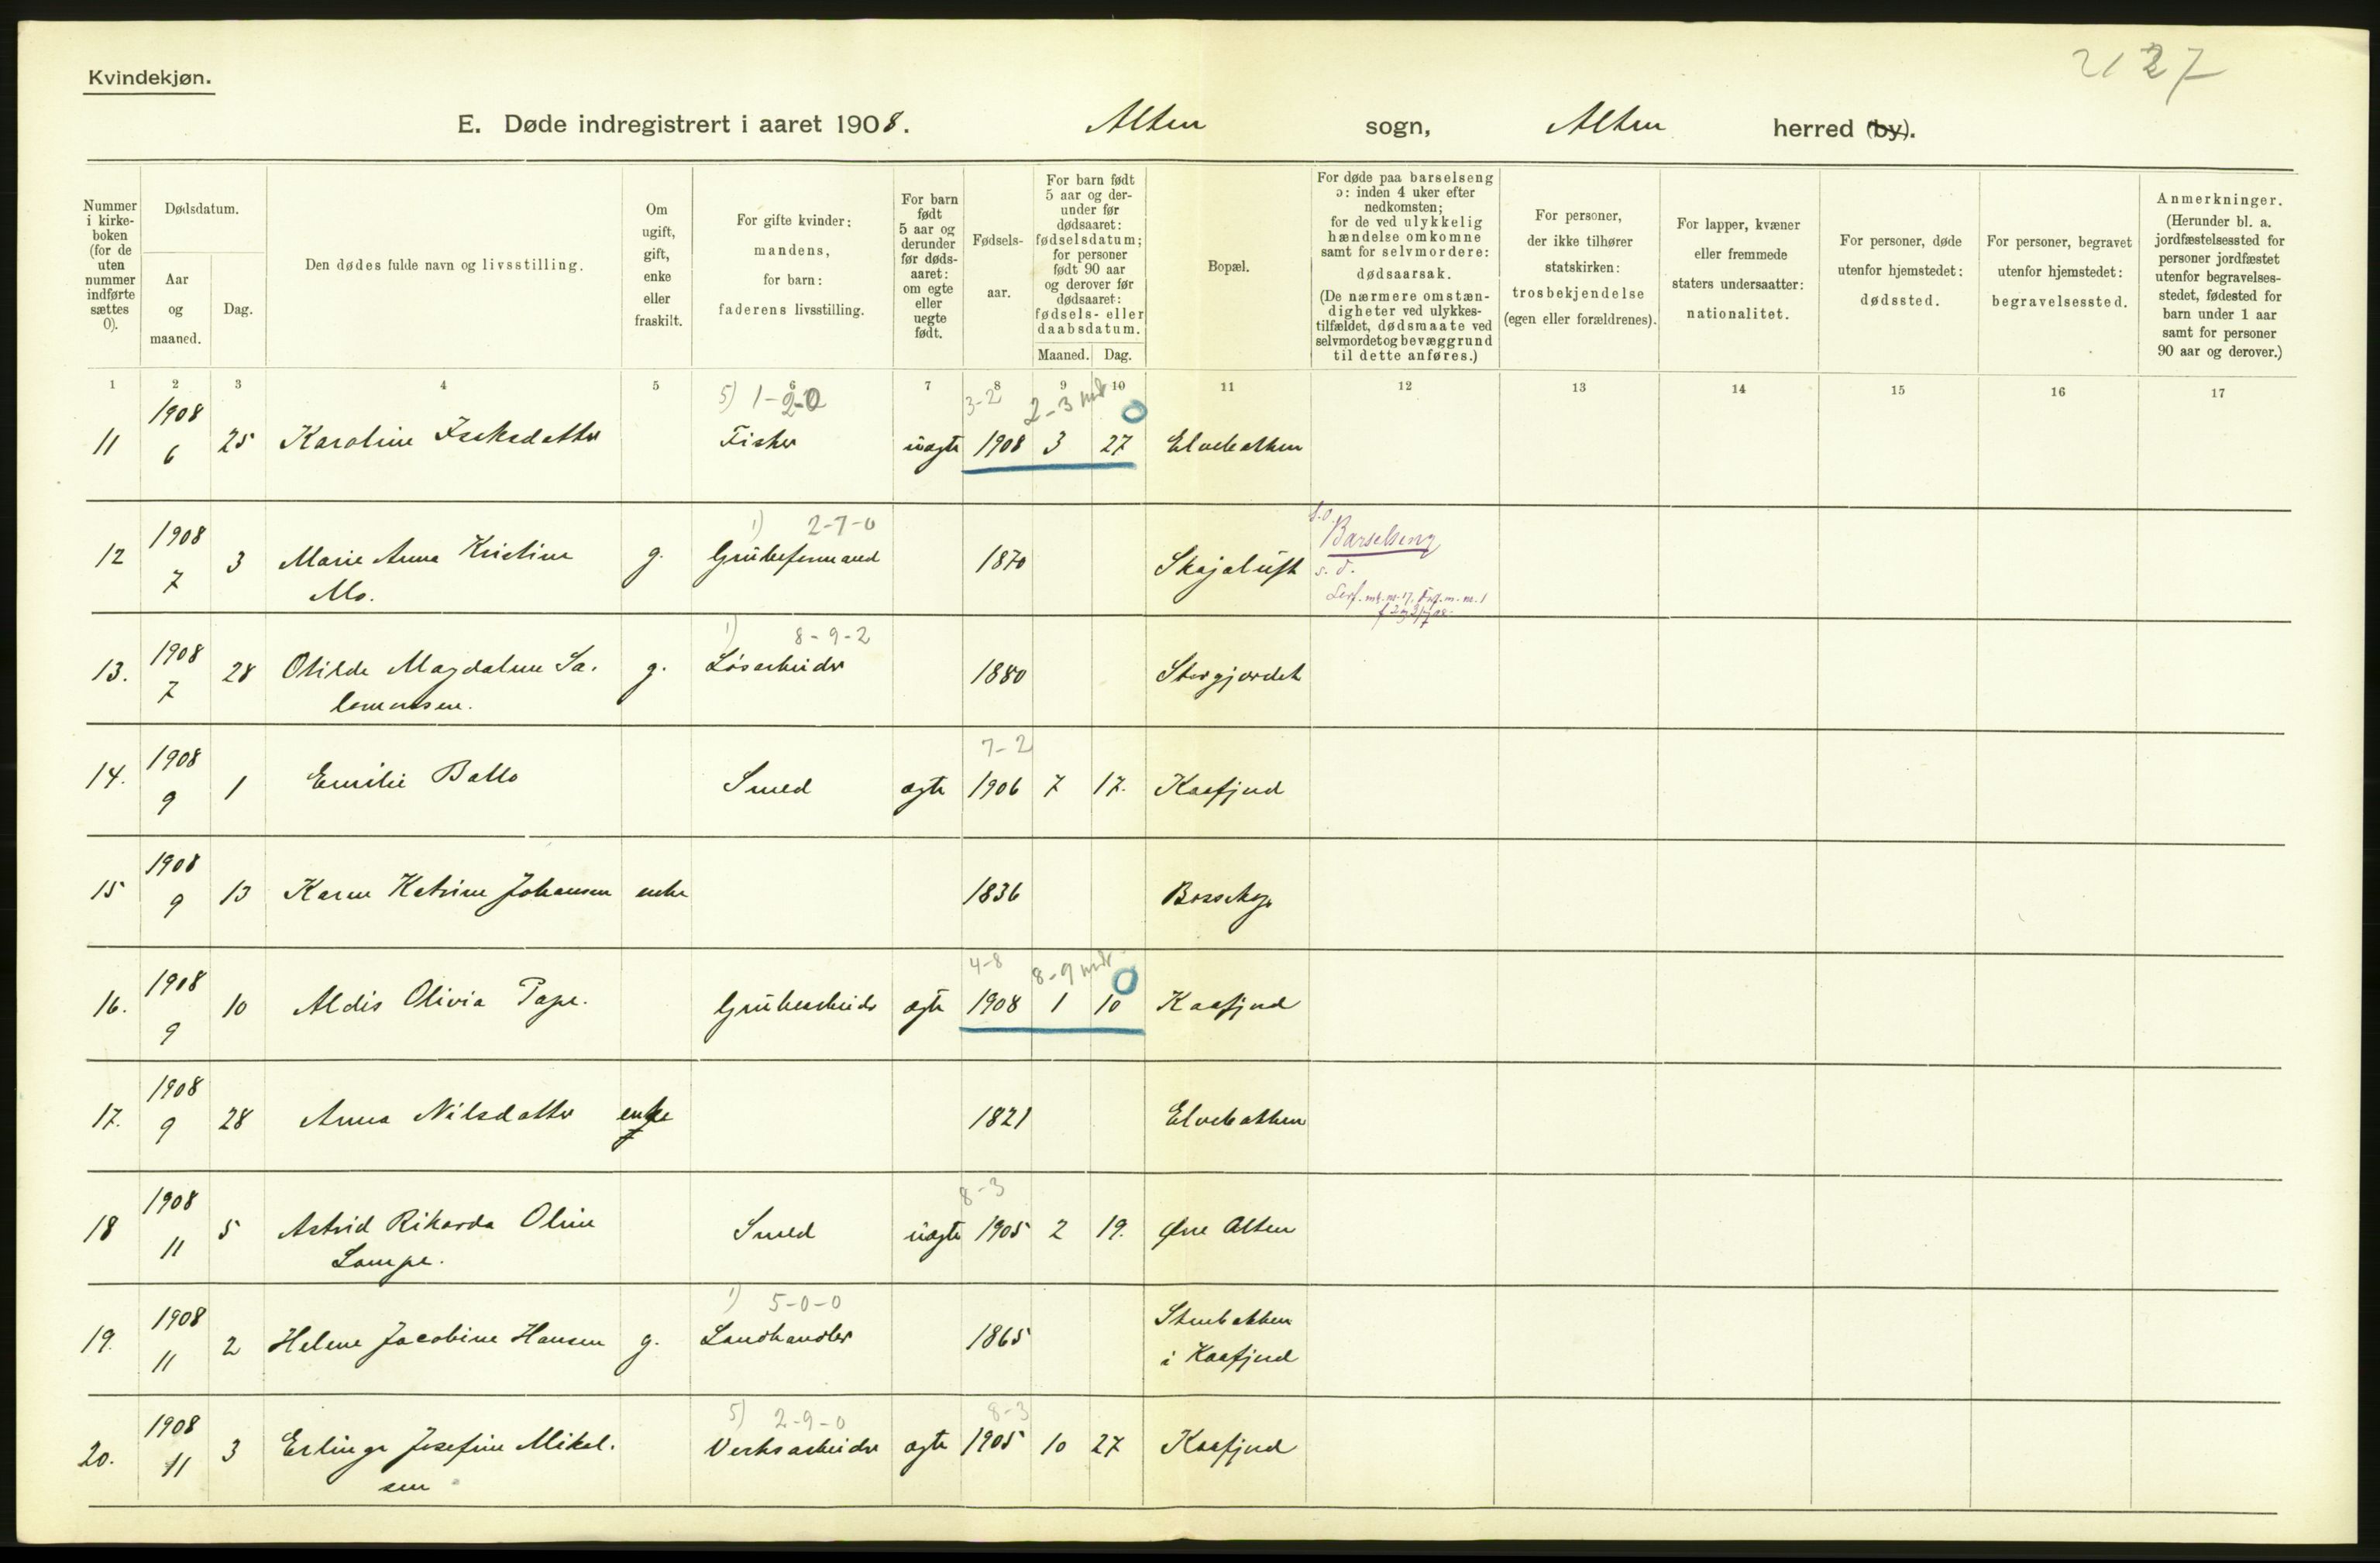 Kvindekjøn.
2127
E. Døde indregistrert i aaret 1908. Alten sogn, Alten herred (by).
Nummer i kirke-boken (for de uten nummer indførte sættes 0).
Dødsdatum.
Aar og maaned.
Dag.
Den dødes fulde navn og livsstilling.
Om ugift, gift, enke eller fraskilt.
For gifte kvinder: mandens, for barn: faderens livsstilling.
For barn født 5 aar og derunder før døds-aaret: om egte eller uegte født.
Fødsels-aar.
For barn født 5 aar og der-under før dødsaaret: fødselsdatum; for personer født 90 aar og derover før dødsaaret: fødsels- eller daabsdatum.
Maaned. Dag.
Bopæl.
For døde paa barselseng ɔ: inden 4 uker efter nedkomsten; for de ved ulykkelig hændelse omkomne samt for selvmordere: dødsaarsak. (De nærmere omstæn-digheter ved ulykkes-tilfældet, dødsmaate ved selvmordet og bevæggrund til dette anføres.)
For personer, der ikke tilhører statskirken: trosbekjendelse (egen eller forældrenes).
For lapper, kvæner eller fremmede staters undersaatter: nationalitet.
For personer, døde utenfor hjemstedet: dødssted.
For personer, begravet utenfor hjemstedet: begravelsessted.
Anmerkninger. (Herunder bl. a. jordfæstelsessted for personer jordfæstet utenfor begravelses-stedet, fødested for barn under 1 aar samt for personer 90 aar og derover.)
1 2 3 4 5 6 7 8 9 10 11 12 13 14 15 16 17
5) 1-2-0 3-2 2-3 mdr 0
11 1908 6 25 Karoline Isaksdatter Fisker uægte 1908 3 27 Elvebakken
1) 2-7-0
12 1908 7 3 Marie Anna Kristine g. Grubeformand 1870 Skajaluft Barselseng
Mo. s. d.
1) 8-9-2
13. 1908 7 28 Otilde Magdalene Sa- g. Løsarbeider 1880 Storgjordet
lomonsen.
7-2
14. 1908 9 1 Emilie Ballo Smed ægte 1906 7 17. Kaafjord
15 1908 9 13 Karen Katrine Johansen enke 1836 Bossekop
4-8 8-9 mdr. 0
16. 1908 9 10 Aldis Olivia Pape. Grubearbeider ægte 1908 1 10 Kaafjord
17. 1908 9 28 Anna Nilsdatter enke 1821 Elvebakken
8-3
18 1908 11 5 Astrid Rikarda Oline Smed uægte 1905 2 19. Øvre Alten
Lampe.
1) 5-0-0
19. 1908 11 2 Helene Jacobine Hansen g. Landhandler 1865 Stenbakken
i Kaafjord
5) 2-9-0 8-3
20. 1908 11 3 Erlinge Josefine Mikel- Verksarbeider ægte 1905 10 27 Kaafjord
sen